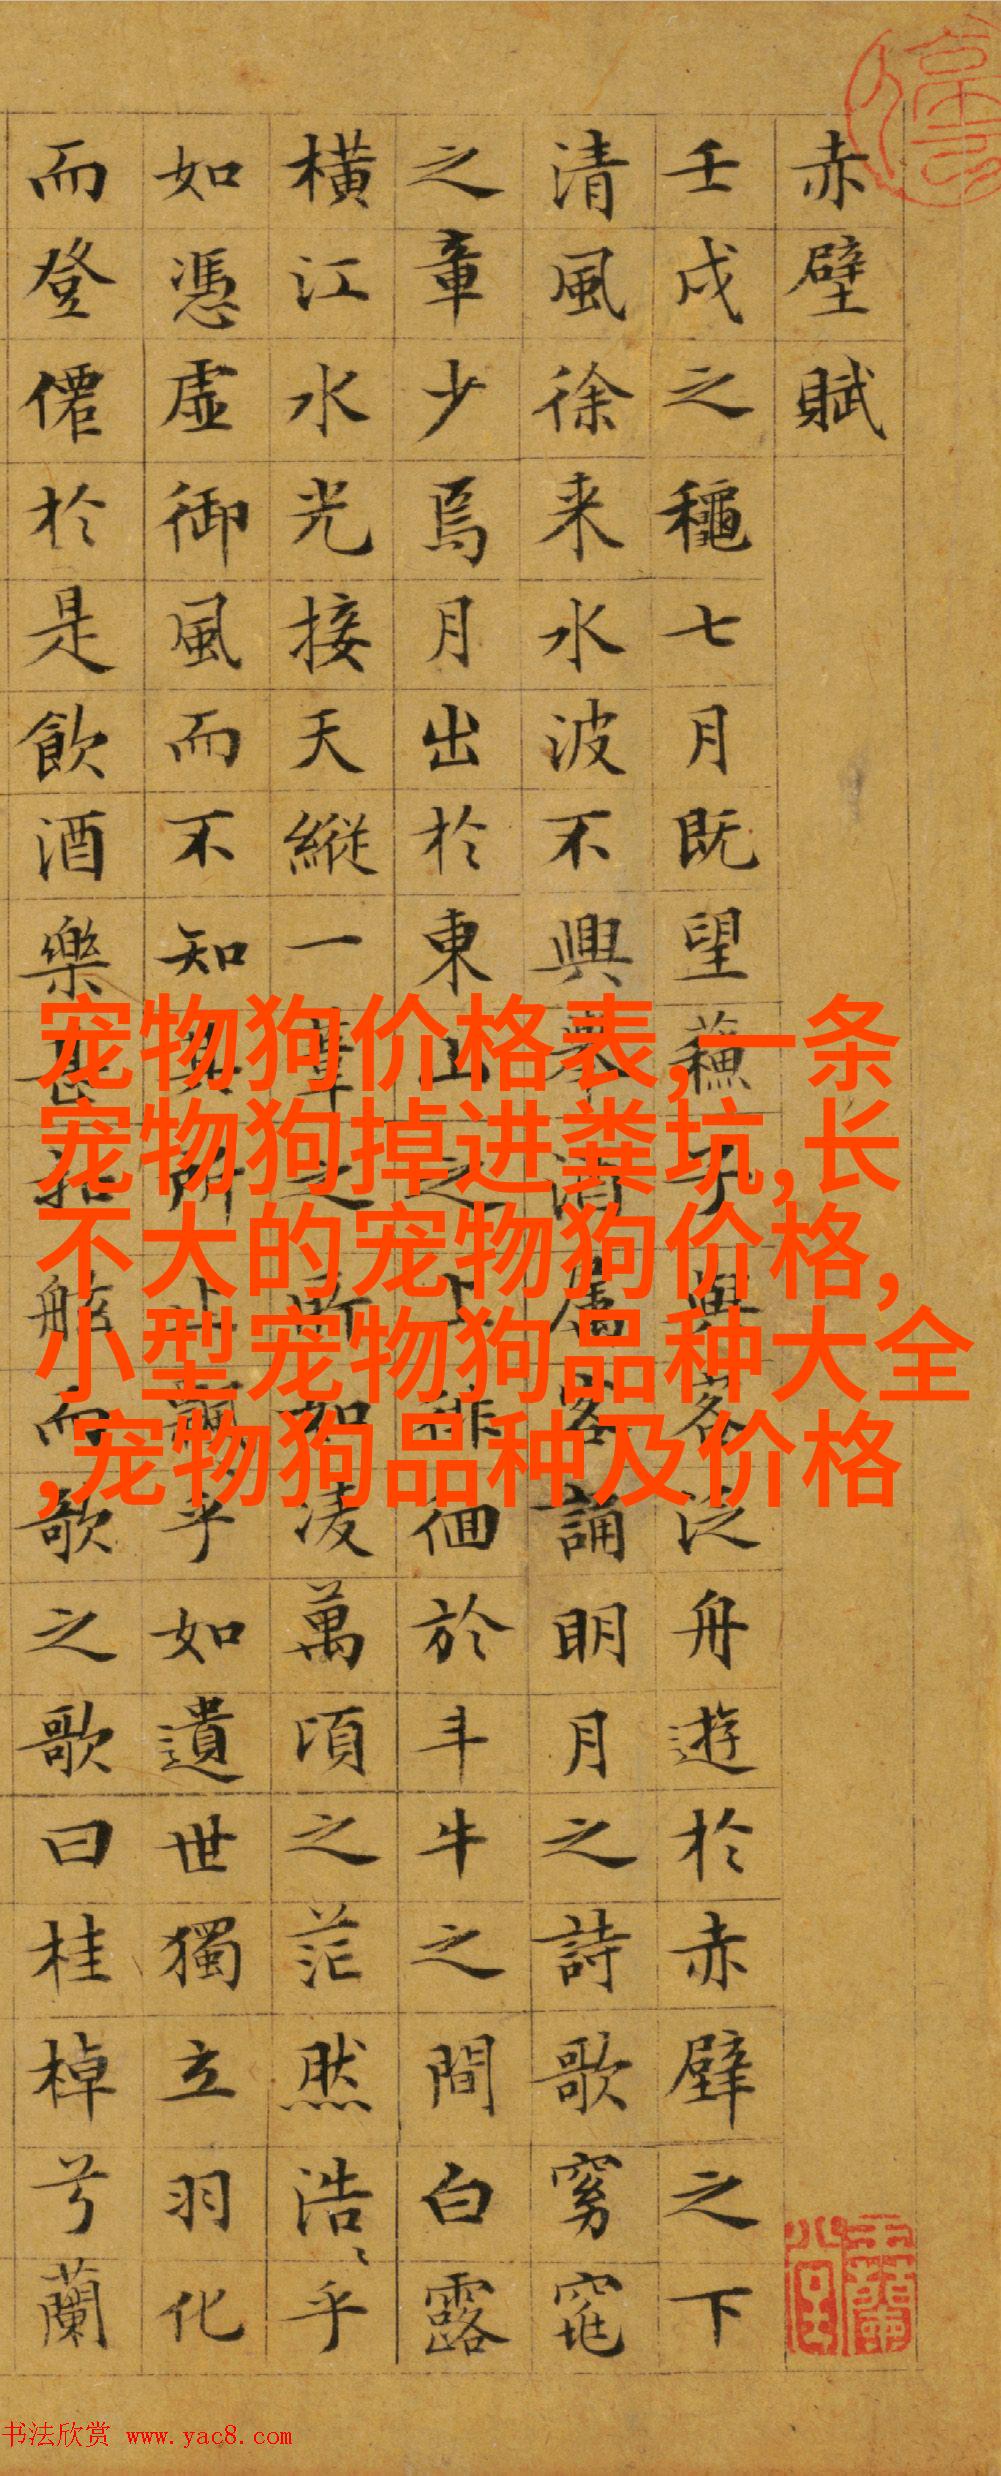 赤壁賦
壬戌之龝七月既望蘓子與客泛舟遊於赤壁之下
清風徐来水波不興舉酒屬客誦明月之詩歌窈窕
之章少焉月出於東山之上徘徊於斗牛之間白露
橫江水光接天縱一葦之所如淩萬頃之茫然浩、乎
如憑虛御風而不知其所止飄乎如遺世獨立羽化
而登僊於是飲酒樂甚扣舷而歌之歌曰桂棹兮蘭
宠物狗价格表,一条
宠物狗掉进粪坑,长
不大的宠物狗价格,
小型宠物狗品种大全
,宠物狗品种及价格
书法欣赏 www.yac8.com